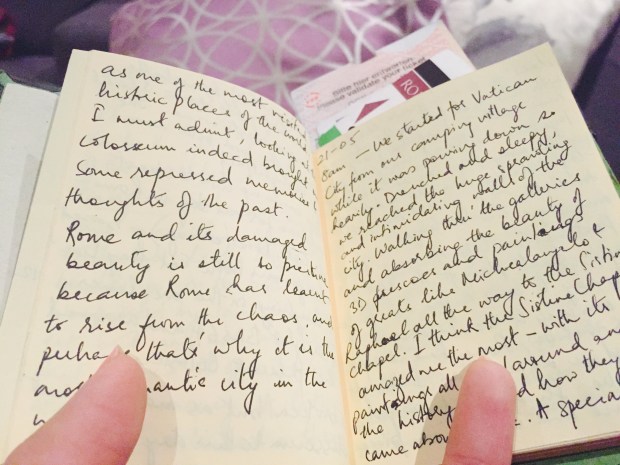 as one of the most
historic places of the
I must admit, looking
colosseum indeed brought
some repressed memories
thoughts of the past.
Rome and its damaged
beauty is still so
because Rome has learnt
to rise from the chaos. and
perhaps that's why it is the
city in the
Bitte hier entwerten
Please validate your ticket
RO
21-05
8am - We started for Vatican
City from our camping village
while it was pouring down so
heavily. Drenched and sleepy,
we reached the huge, sprawling
and intimidating walls of the
city. Walking thru' the galleries
and absorbing the beauty of
3D frescoes and paintings
of greats like Michealangelo &
Raphael all the way to the Sistine
chapel. I think the Sistine Chapel
amazed me the most - with its
paintings all around and
the history and how they
came about. A special